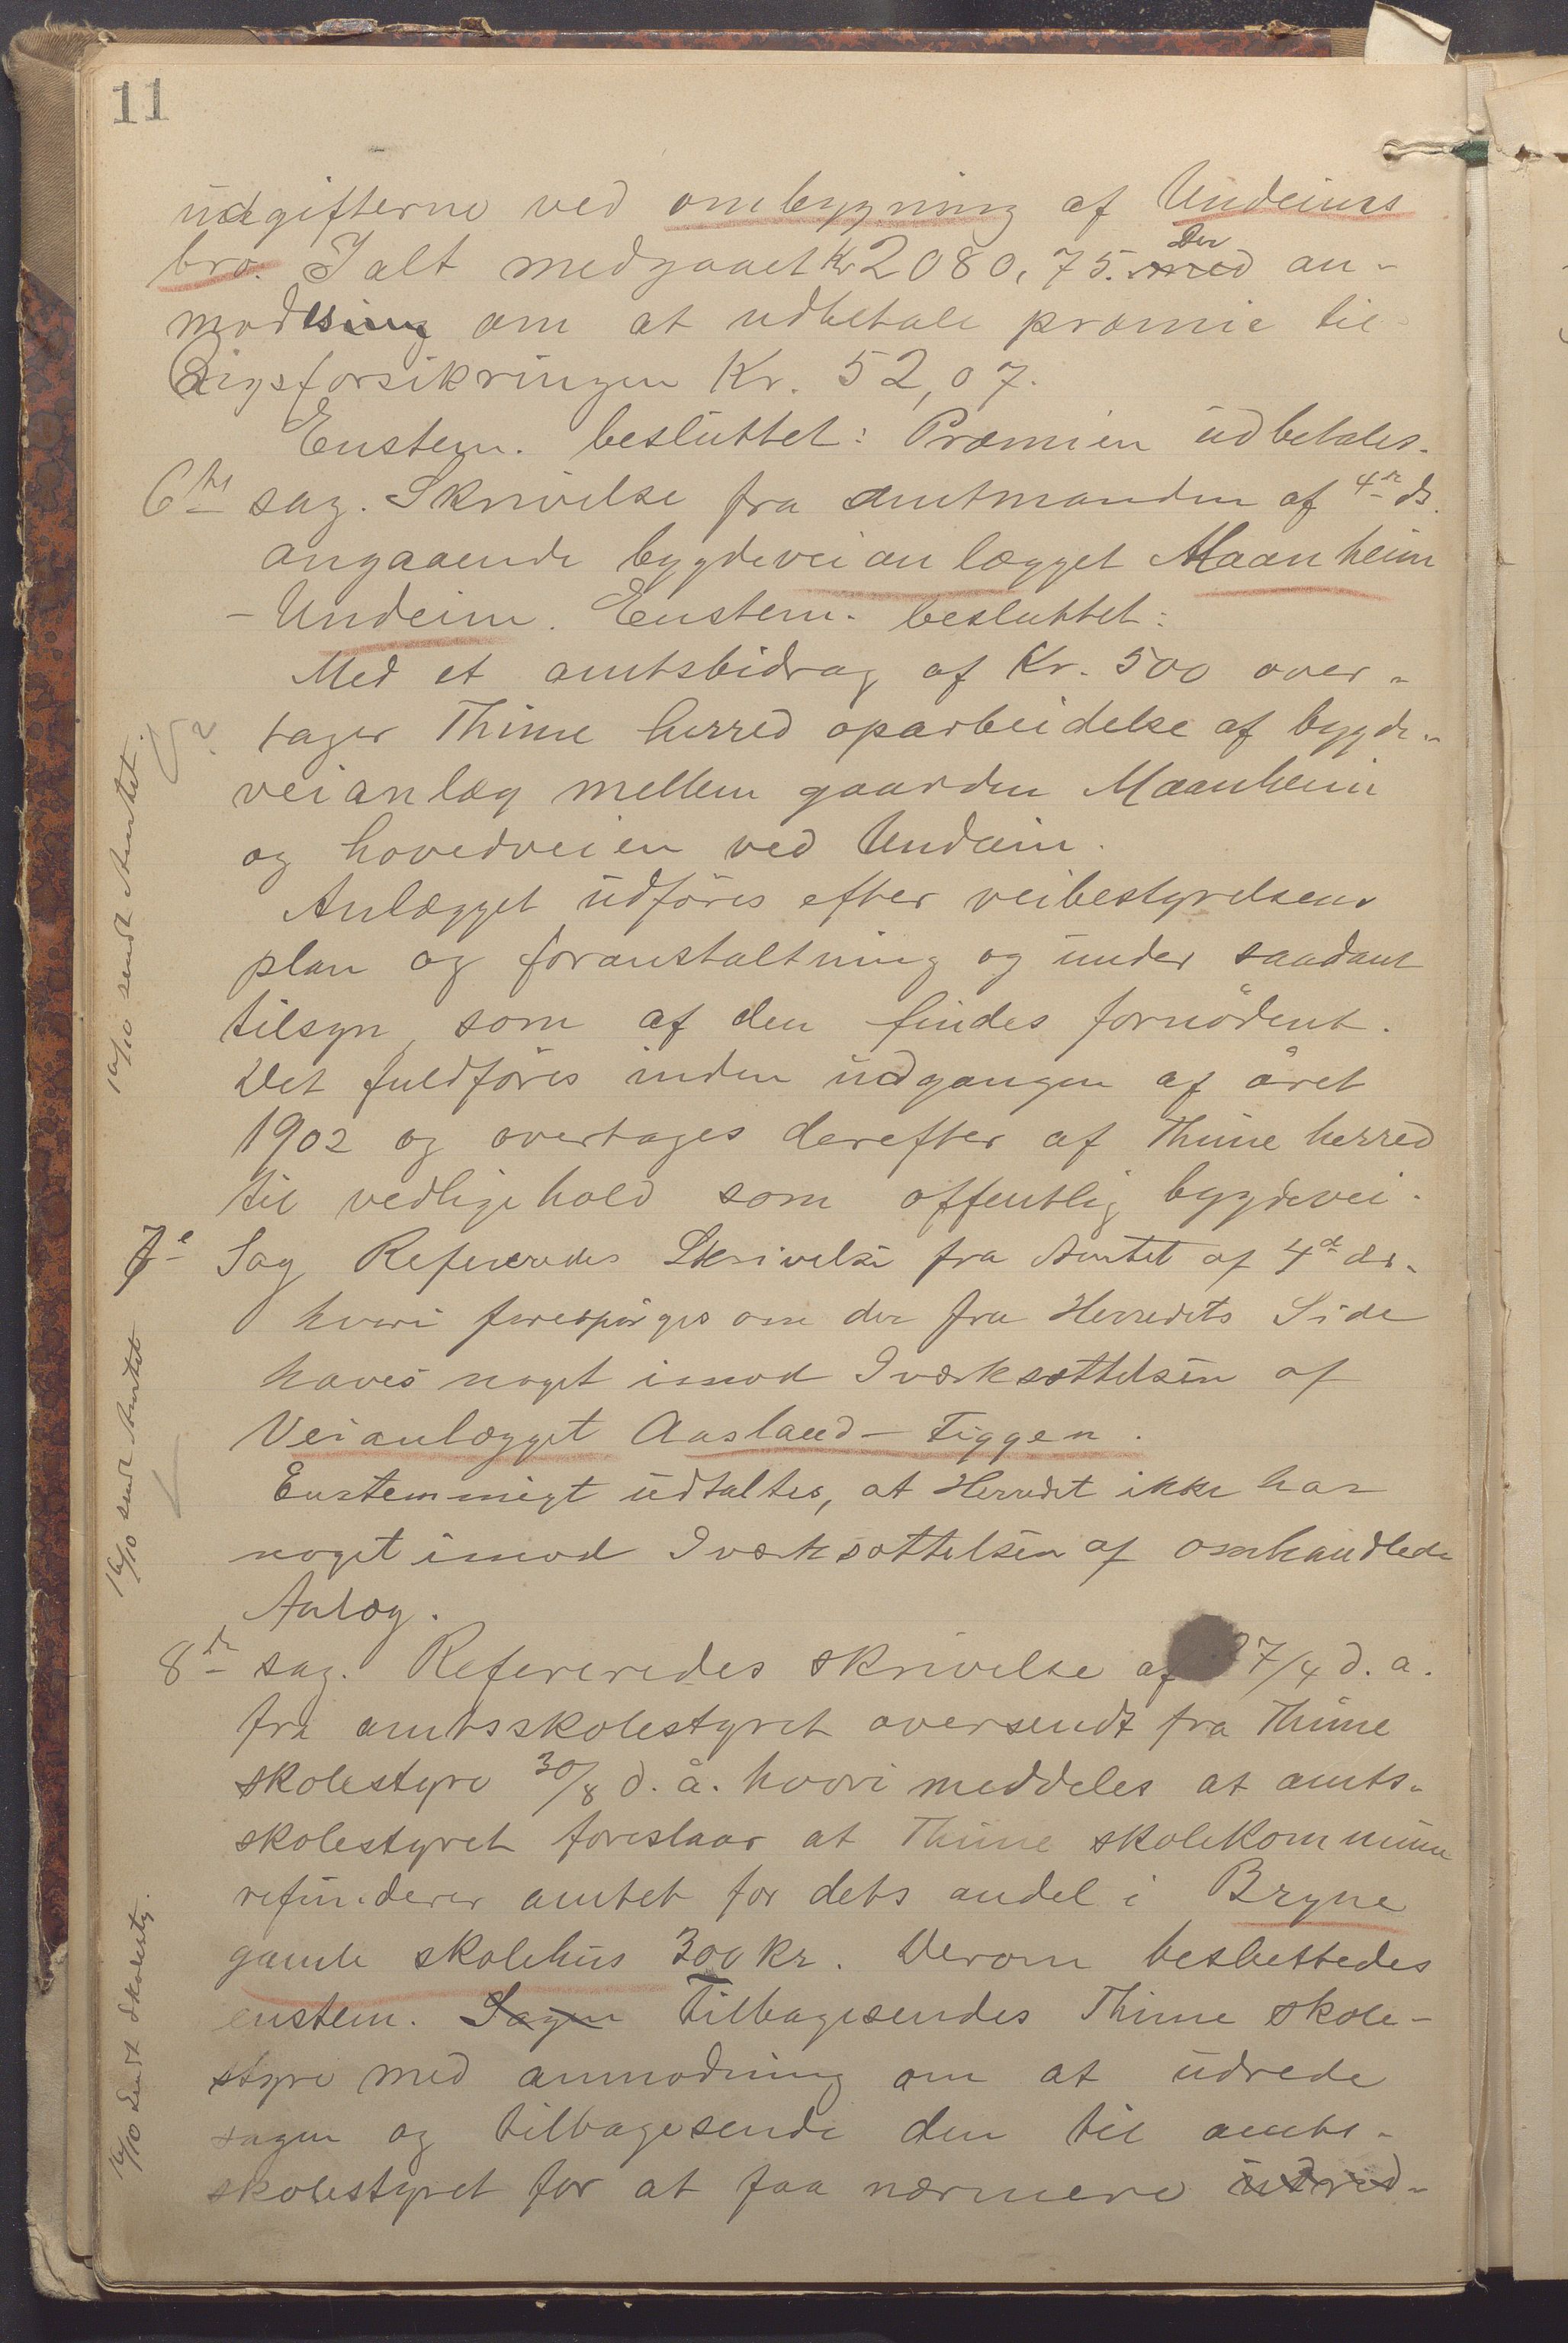 11
udgifterne ved ombygning af Undeims
bro. Ialt medgaaet Kr 2080,75. Der an-
modes om at udbetale præmie til
Rigsforsikringen Kr. 52,07.
Enstem. besluttet: Præmien udbetales.
6te sag. Skrivelse fra amtmanden af 4de ds.
angaaende bygdeveianlægget Maanheim
- Undeim. Enstem. besluttet:
Med et amtsbidrag af Kr. 500 over-
tager Thime herred oparbeidelse af bygde-
veianlæg mellem gaarden Maanheim
og hovedveien ved Undeim.
Anlægget udføres efter veibestyrelsens
plan og foranstaltning og under saadant
tilsyn, som af den findes fornødent.
Det fuldføres inden udgangen af året
1902 og overtages derefter af Thime herred
til vedligehold som offentlig bygdevei.
7e Sag Refereredes Skrivelse fra Amtet af 4de ds.
hvori forespørges om der fra Herredets Side
haves noget imod Iværksættelsen af
Veianlægget Aasland - Tiggen.
Enstemmigt udtaltes, at Herredet ikke har
noget imod Iværksættelsen af omhandlede
Anlæg.
8de sag. Refereredes skrivelse af 7/4 d. a.
fra amtsskolestyret oversendt fra Thime
skolestyre 30/8 d. å. hvori meddeles at amts-
skolestyret foreslaar at Thime skolekommune
refunderer amtet for dets andel i Bryne
gamle skolehus 300 kr. Derom besluttedes
enstem. Sagen Tilbagesendes Thime skole-
styre med anmodning om at udrede
sagen og tilbagesende den til amts-
skolestyret for at faa nærmere udred-
16/10 sendt Amtet.
16/10 sendt Amtet
16/10 Sendt Skolesty.